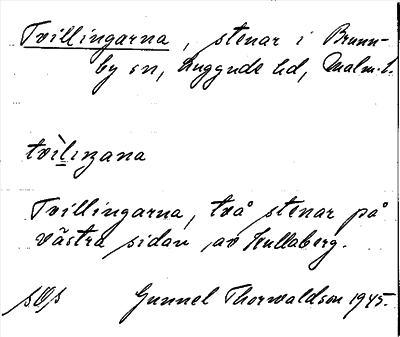 Tvillingarna, stenar i Brunn-
by sn, Luggude hd, Malm. l.
tvìlıŋana
Tvillingarna, två stenar på
västra sidan av Kullaberg.
Gunnel Thorwaldson 1945.